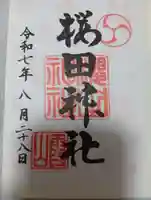 桜田神社
令和七年八月二十八日